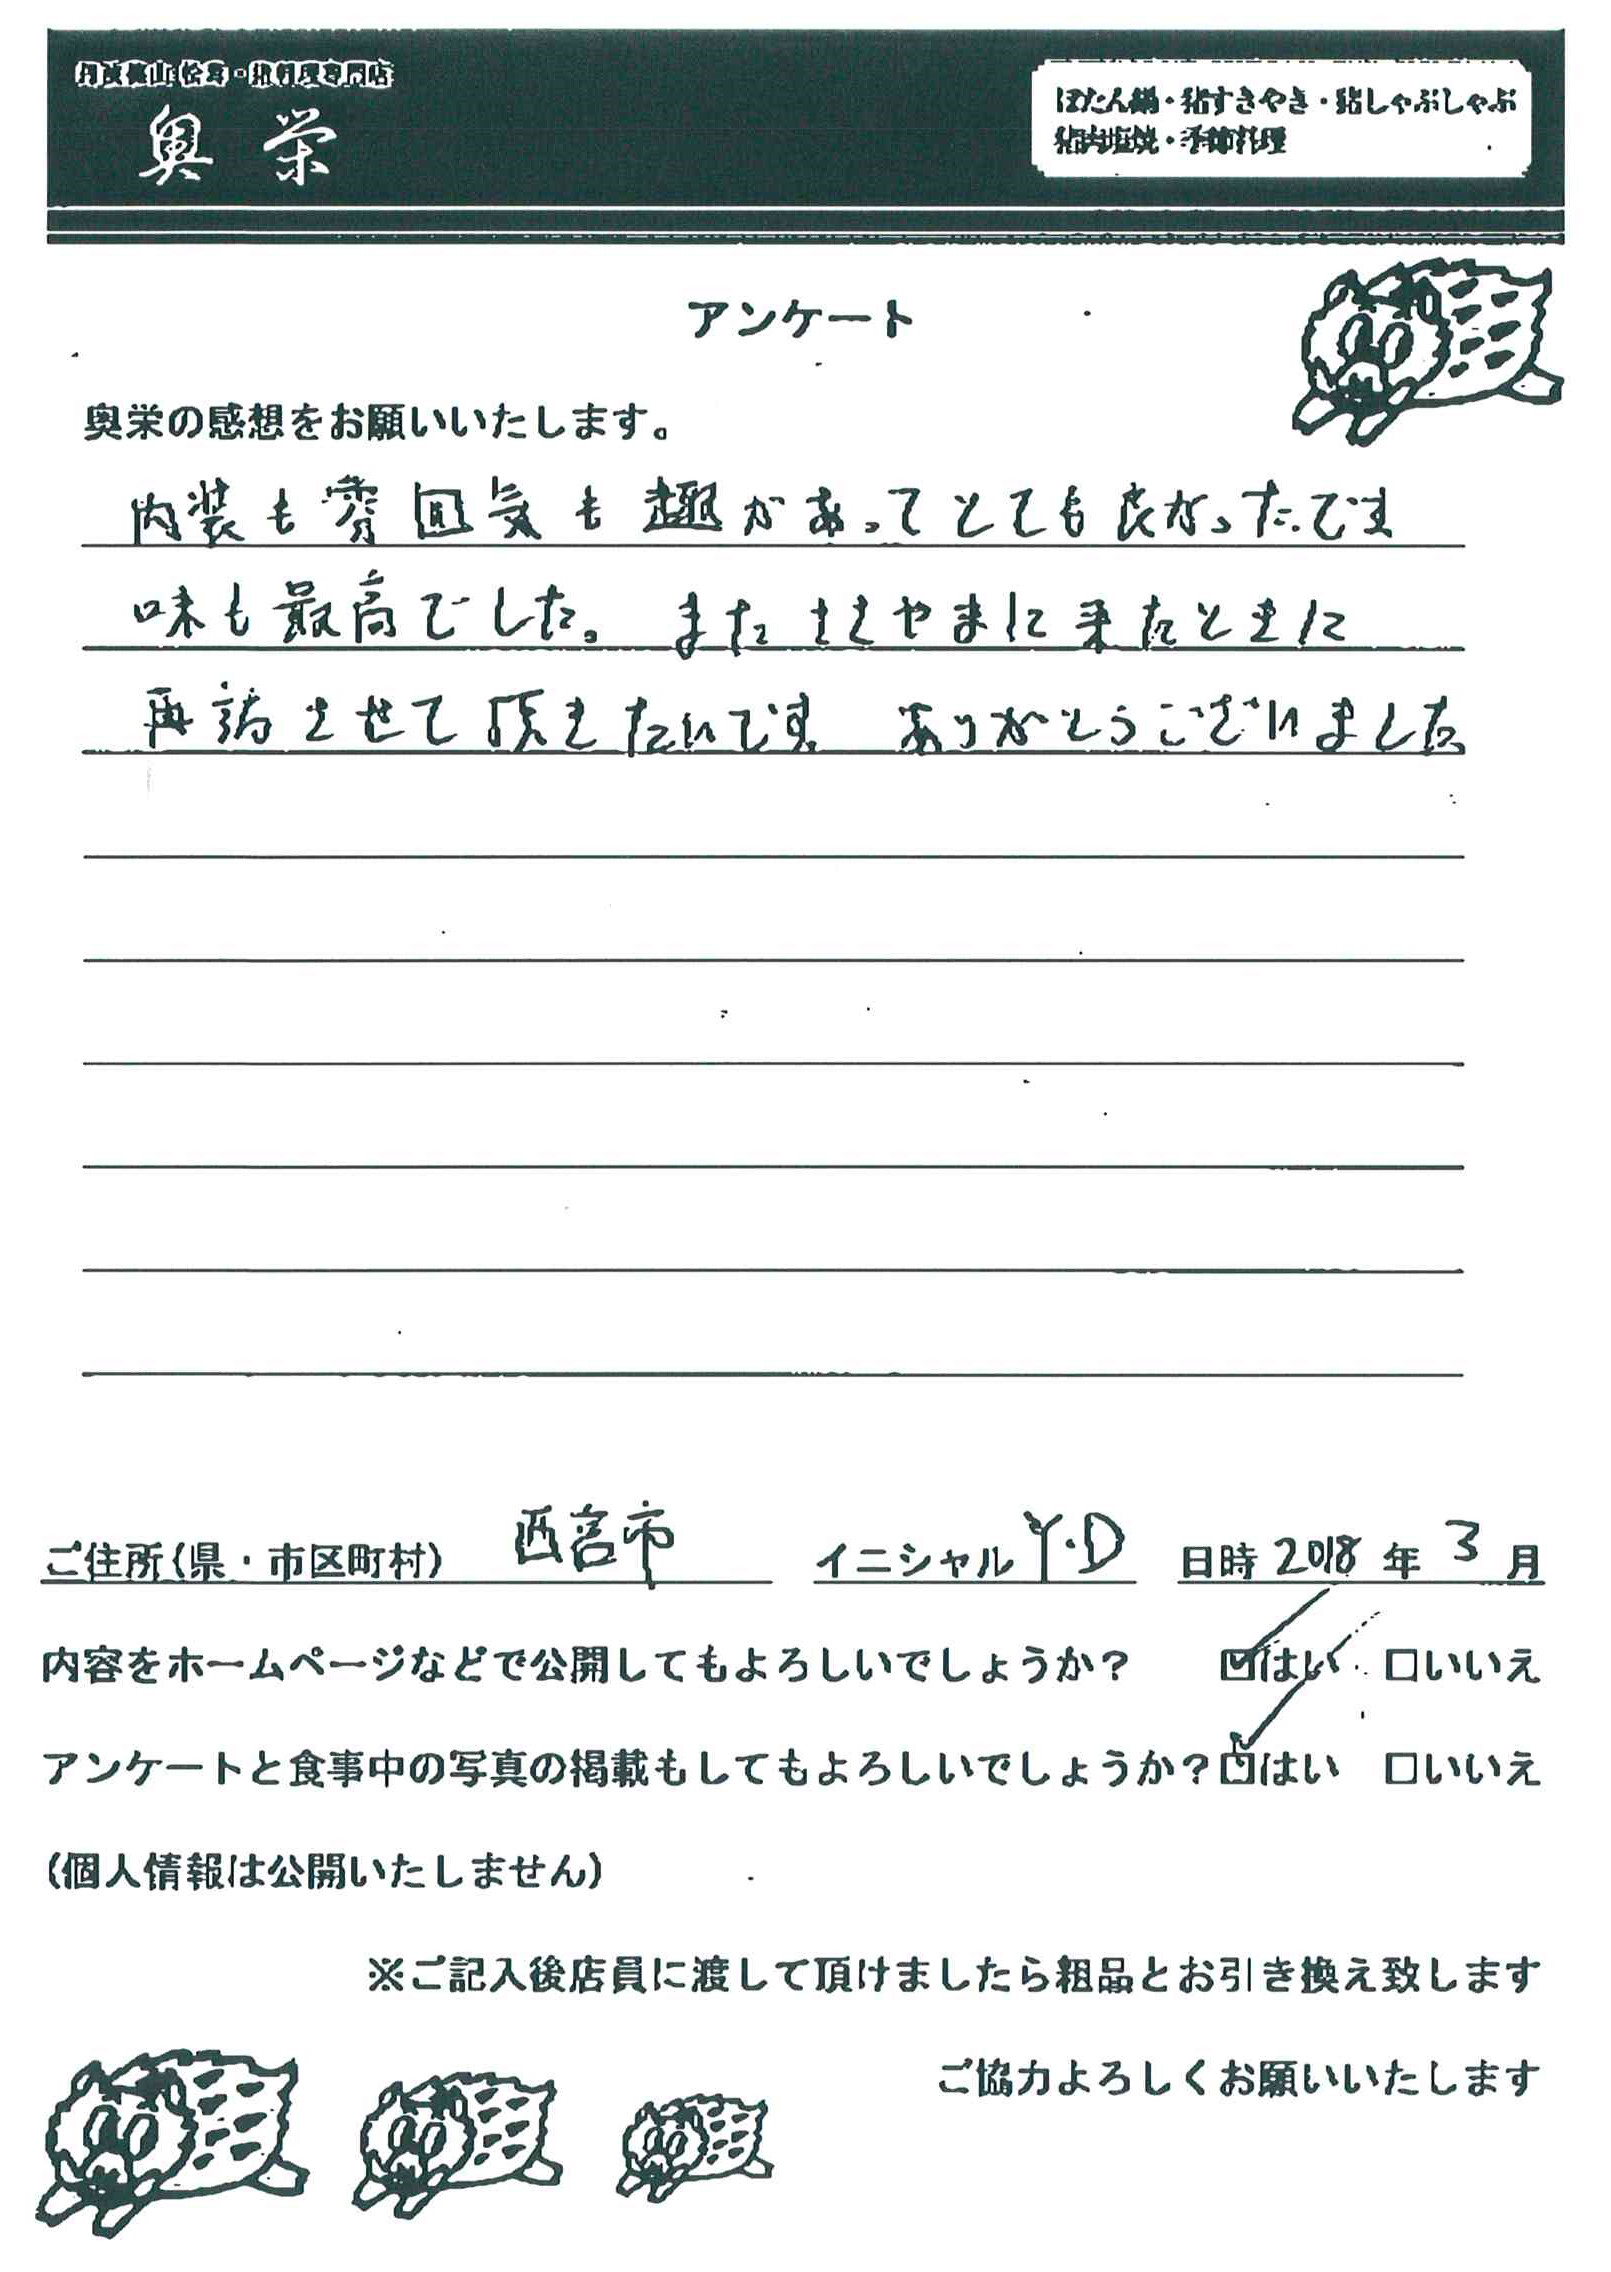 丹波篠山 松茸・猪料理専門店
奥栄
ぼたん鍋・猪すきやき・猪しゃぶしゃぶ
猪肉塩焼・季節料理
アンケート
奥栄の感想をお願いいたします。
内装も雰囲気も趣があってとても良かったです
味も最高でした。またささやまに来たときに
再訪させて頂きたいです ありがとうございました
ご住所(県・市区町村) 西宮市 イニシャル Y.D 日時 2018 年 3 月
内容をホームページなどで公開してもよろしいでしょうか? ☑はい □いいえ
アンケートと食事中の写真の掲載もしてもよろしいでしょうか? ☑はい □いいえ
(個人情報は公開いたしません)
※ご記入後店員に渡して頂けましたら粗品とお引き換え致します
ご協力よろしくお願いいたします